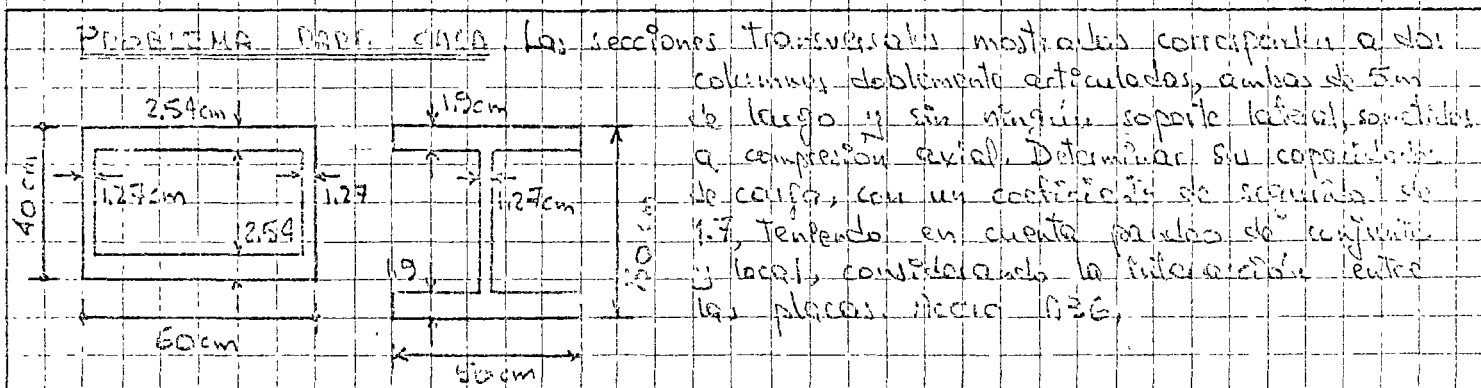 PROBLEMA PARA CASA. Las secciones transversales mostradas corresponden a dos
columnas doblemente articuladas, ambas de 5m
de largo y sin ningún soporte lateral, sometidas
a compresión axial. Determinar su capacidad
de carga, con un coeficiente de seguridad de
1.7, teniendo en cuenta pandeo de conjunto
y local, considerando la interacción entre
las placas. Acero A36.
2.54cm
1.9cm
40cm
1.27cm
1.27
1.27cm
2.54
1.9
60cm